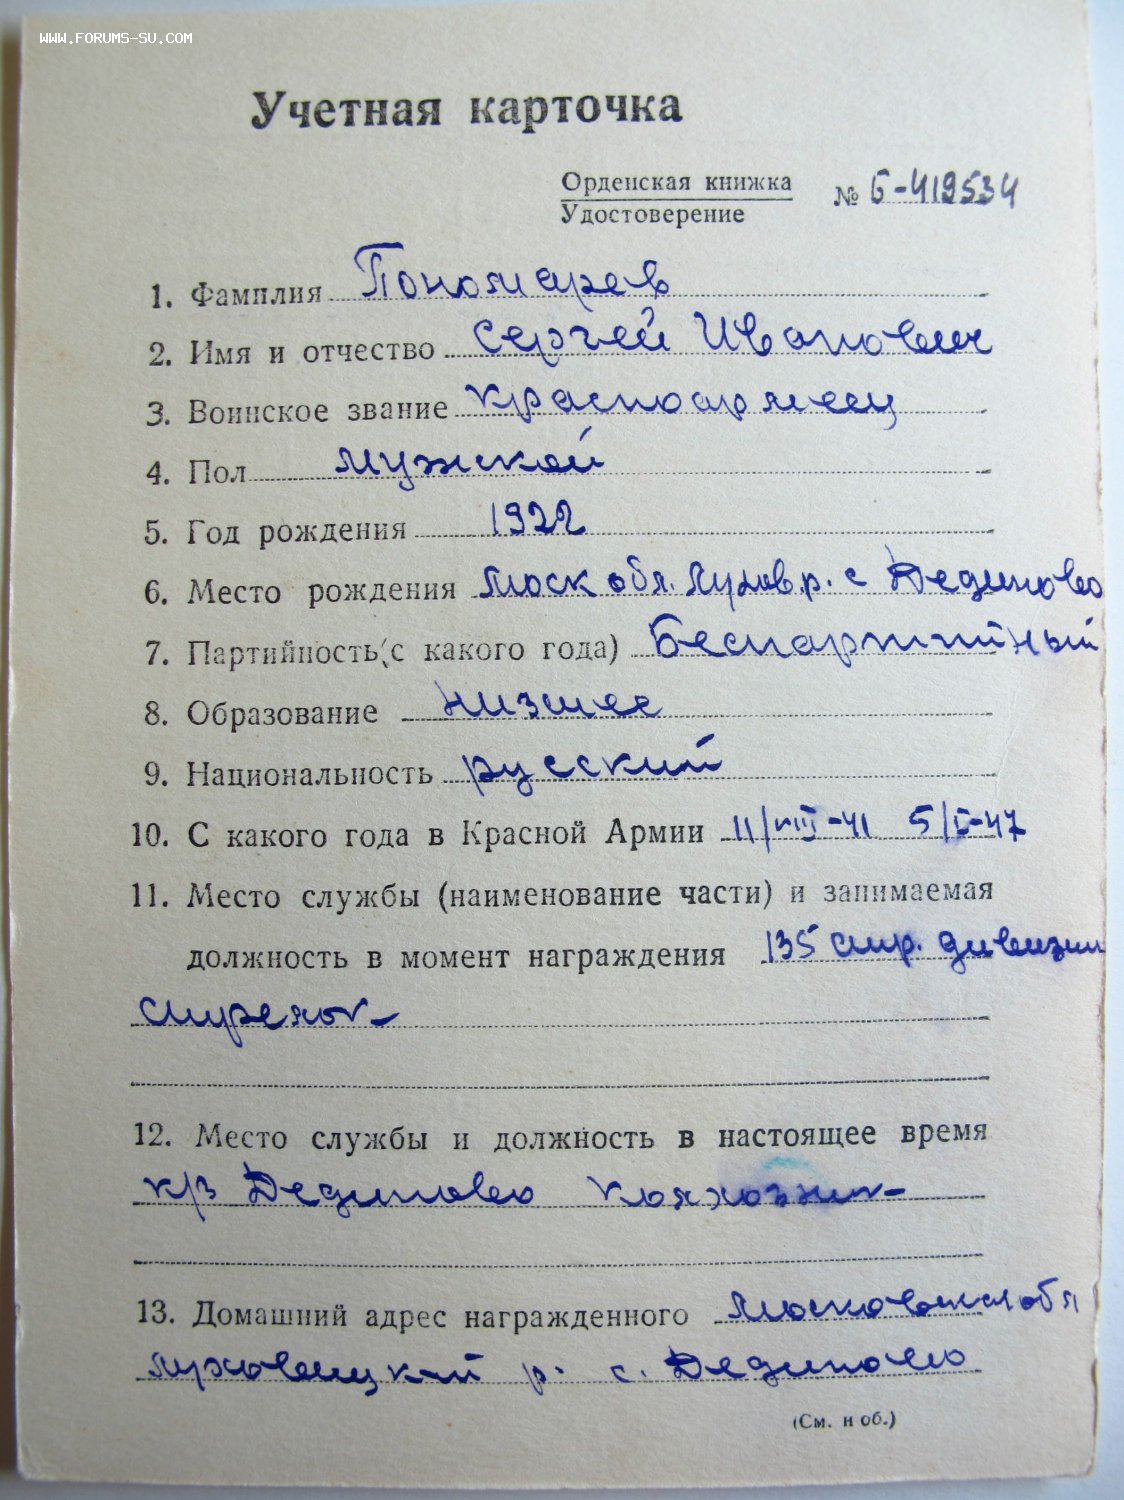 WWW.FORUMS-SU.COM
Учетная карточка
Орденская книжка
Удостоверение
№ Б-419534
1. Фамилия Пономарев
2. Имя и отчество Сергей Иванович
3. Воинское звание красноармеец
4. Пол мужской
5. Год рождения 1922
6. Место рождения Моск обл. Лухов.р. с Дединово
7. Партийность (с какого года) Беспартийный
8. Образование низшее
9. Национальность русский
10. С какого года в Красной Армии 11/VIII-41 5/I-47
11. Место службы (наименование части) и занимаемая
должность в момент награждения 135 стр. дивизии
стрелок
12. Место службы и должность в настоящее время
к/з Дединово Колхозник
13. Домашний адрес награжденного Московская обл
Луховицкий р. с. Дединово
(См. н об.)